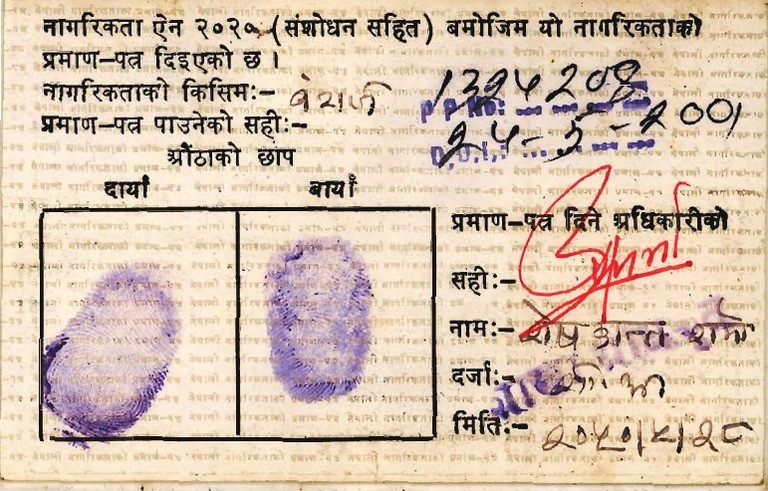 नागरिकता ऐन २०२० (संशोधन सहित) बमोजिम यो नागरिकताको
प्रमाण-पत्र दिइएको छ ।
नागरिकताको किसिम:- वंशज
प्रमाण-पत्र पाउनेको सही:-
1324208
P P No:
24-5-2001
D.O.I.:
औंठाको छाप
दायाँ बायाँ
प्रमाण-पत्र दिने अधिकारीको
सही:-
नाम:- शेष शर्मा
दर्जा:-
मिति:- २०५०/४/२८